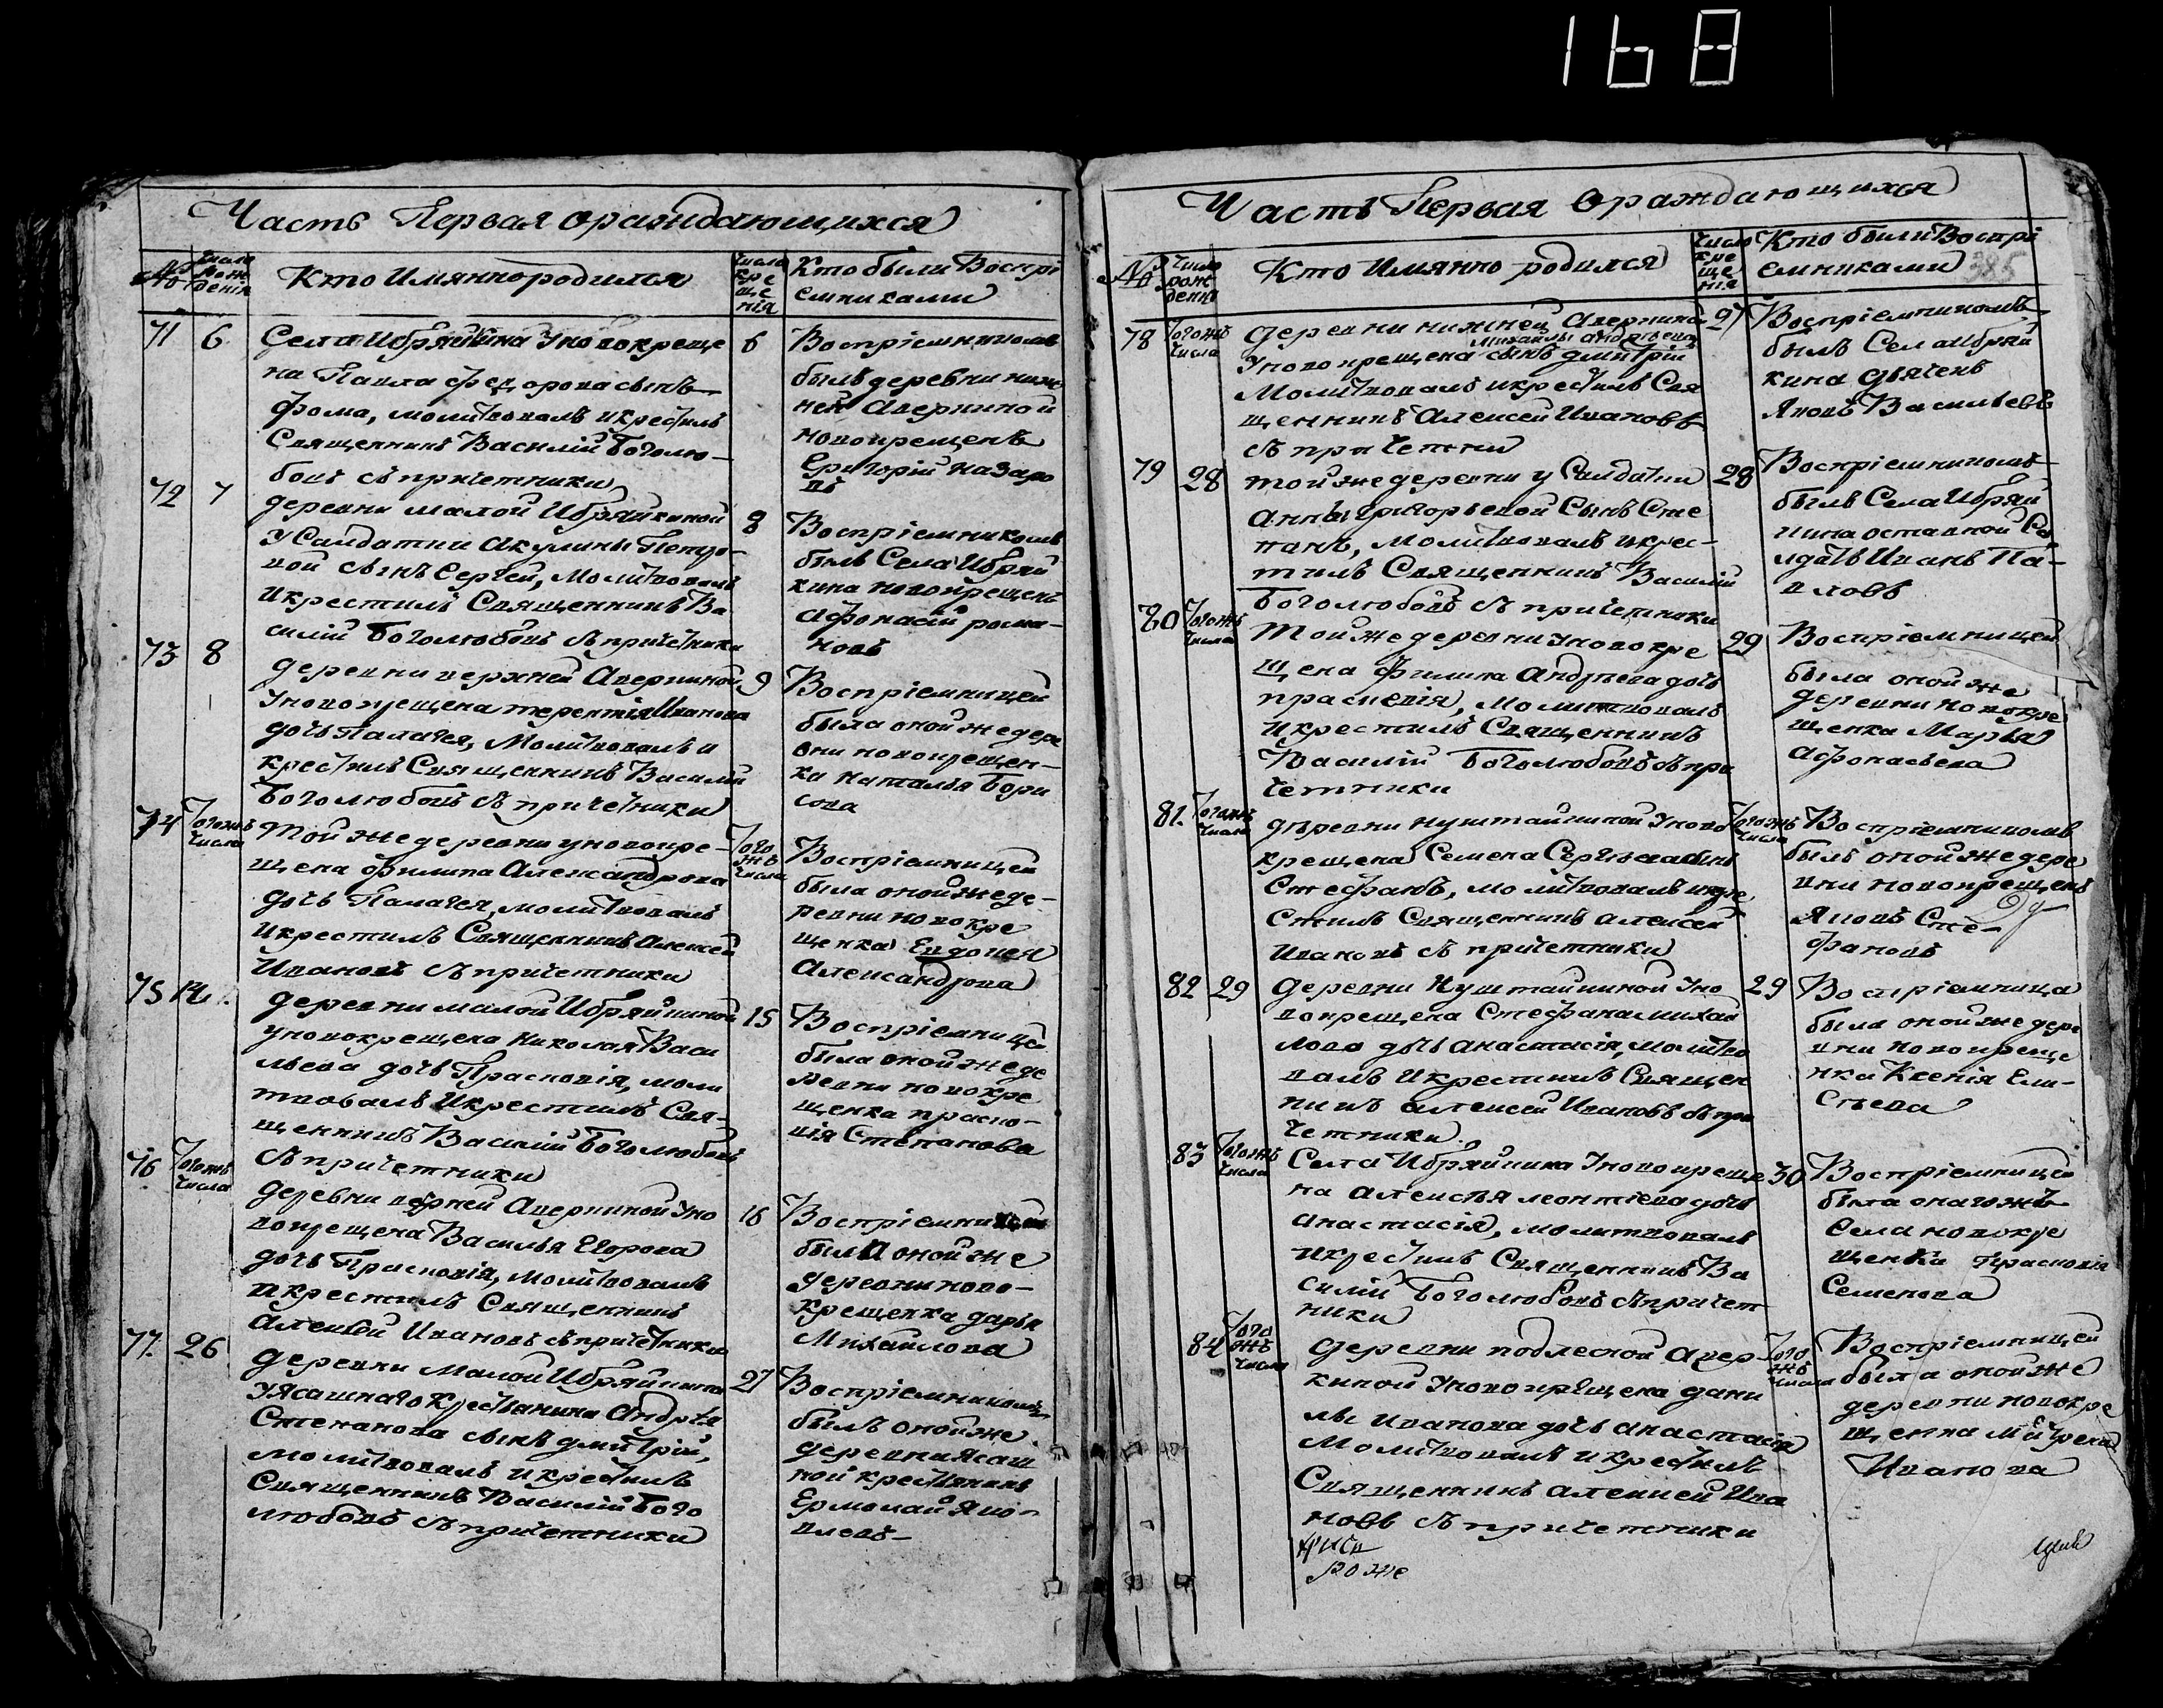 168
Часть Первая ораждающихся
№
Числа рож денія
Кто Имянно родился
Числа кре ще нія
Кто были Воспрі
емниками
71 6 Села Ибряйкина Уновокреще
на Павла Федорова сынъ
Фома, молитвовалъ икрестилъ
Священникъ Василій Боголю-
бовъ съ причетники
6 Воспріемникомъ
былъ деревни ниж
ней Аверкиной
новокрещенъ
Григорій Назаро
въ
72 7 деревни малой Ибряйкиной
У Салдатки Акулины Петро-
вой сынъ Сергей, Молитвовалъ
икрестилъ Священникъ Ва
силій Боголюбовъ съ причетники
8 Воспріемникомъ
былъ Села Ибряй
кина новокрещенъ
Афонасій рома-
новъ
73 8 деревни верхней Аверкиной
Уновокрещена терентія Иванова
дочь Палагея, Молитвовалъ и
крестилъ Священникъ Василій
Боголюбовъ съ причетники
9 Воспріемницей
была оной же дере
вни новокрещен-
ка наталья Бори
сова
74 Тогожъ Числа Той же деревни уновокре-
щена Филипа Александрова
дочь Палагея, молитвовалъ
икрестилъ Священникъ Алексей
Ивановъ съ причетники
Того жъ числа Воспріемницей
была оной же де-
ревни новокре
щенка Евдокея
Александрова
75 14 деревни малой Ибряйкиной
уновокрещена Николая Васи
льева дочь Прасковія, моли
твовалъ Икрестилъ Свя-
щенникъ Василій Боголюбовъ
съ причетники
15 Воспріемницей
была оной же де
ревни новокре
щенка праско-
вія Степанова
76 Тогожъ Числа деревни верхней Аверкиной Уно
вокрещена Василья Егорова
дочь Прасковія, молитвовалъ
икрестилъ Священникъ
Алексей Ивановъ съ причетники
16 Воспріемницей
была оной же
деревни ново-
крещенка дарья
Михайлова
77. 26 деревни Малой Ибряйкина
У Ясашнаго Крестьянина Андрѣя
Степанова сынъ дмитрій,
молитвовалъ икрестилъ
Священникъ Василій Бого
любовъ съ причетники
27 Воспріемникомъ
былъ оной же
деревни Ясаш
ной крестьянинъ
Ермолай Яко-
влевъ
Часть Первая Ораждающихся
№
Число рож денія
Кто Имянно родился
Число кре ще нія
Кто были Воспрі
емниками
385
78 Тогожъ Числа деревни нижней Аверкиной
Михайлы андрѣева
Уновокрещена сынъ дмитрій
Молитвовалъ икрестилъ Свя
щенникъ Алексей Ивановъ
съ причетники
27 Воспріемникомъ
былъ Села Ибряй
кина дьячекъ
Яковъ Васильевъ
79 28 той же деревни у Салдатки
анны григорьевой Сынъ Сте
панъ, молитвовалъ икрес-
тилъ Священникъ Василій
Боголюбовъ съ причетники
28 Воспріемникомъ
былъ Села Ибряй
кина оставной Са
лдатъ Иванъ Па-
вловъ
80 Тогожъ Числа Той же деревни уновокре
щена Филипа Андреева дочь
прасковія, молитвовалъ
икрестилъ Священникъ
Василій Боголюбовъ съ при
четники
29 Воспріемницей
была оной же
деревни новокре
щенка Марья
афонасьева
81. Тогожъ Числа деревни куштайкиной Уново
крещена Семена Сергѣева сынъ
Стефанъ, молитвовалъ икре
стилъ Священникъ алексей
Ивановъ съ причетники
Тогожъ Числа Воспріемникомъ
былъ оной же дере
вни новокрещенъ
Яковъ Сте-
фановъ
82 29 деревни Куштайкиной Уно
вокрещена Стефана михай
лова дочь анастасія, Молитво
валъ Икрестилъ Священ
никъ алексей Ивановъ съ при
четники.
29 Воспріемница
была оной же дере
вни новокреще
нка Ксенія Ели-
сѣева
83 Тогожъ Числа Села Ибряйкина Уновокреще
на алексѣя леонтіева дочь
анастасія, молитвовалъ
икрестилъ Священникъ Ва
силій Боголюбовъ съ причет
ники
30 Воспріемницей
была онагожъ
Села новокре
щенка прасковія
Семенова
84 Того жъ числа деревни подлесной Авер-
киной Уновокрещена дани
лы Иванова дочь анастасія
Молитвовалъ икрестилъ
Священникъ алексей Ива
новъ съ причетники
Того жъ числа Воспріемницей
была оной же
деревни новокре
щенка Матрена
Иванова